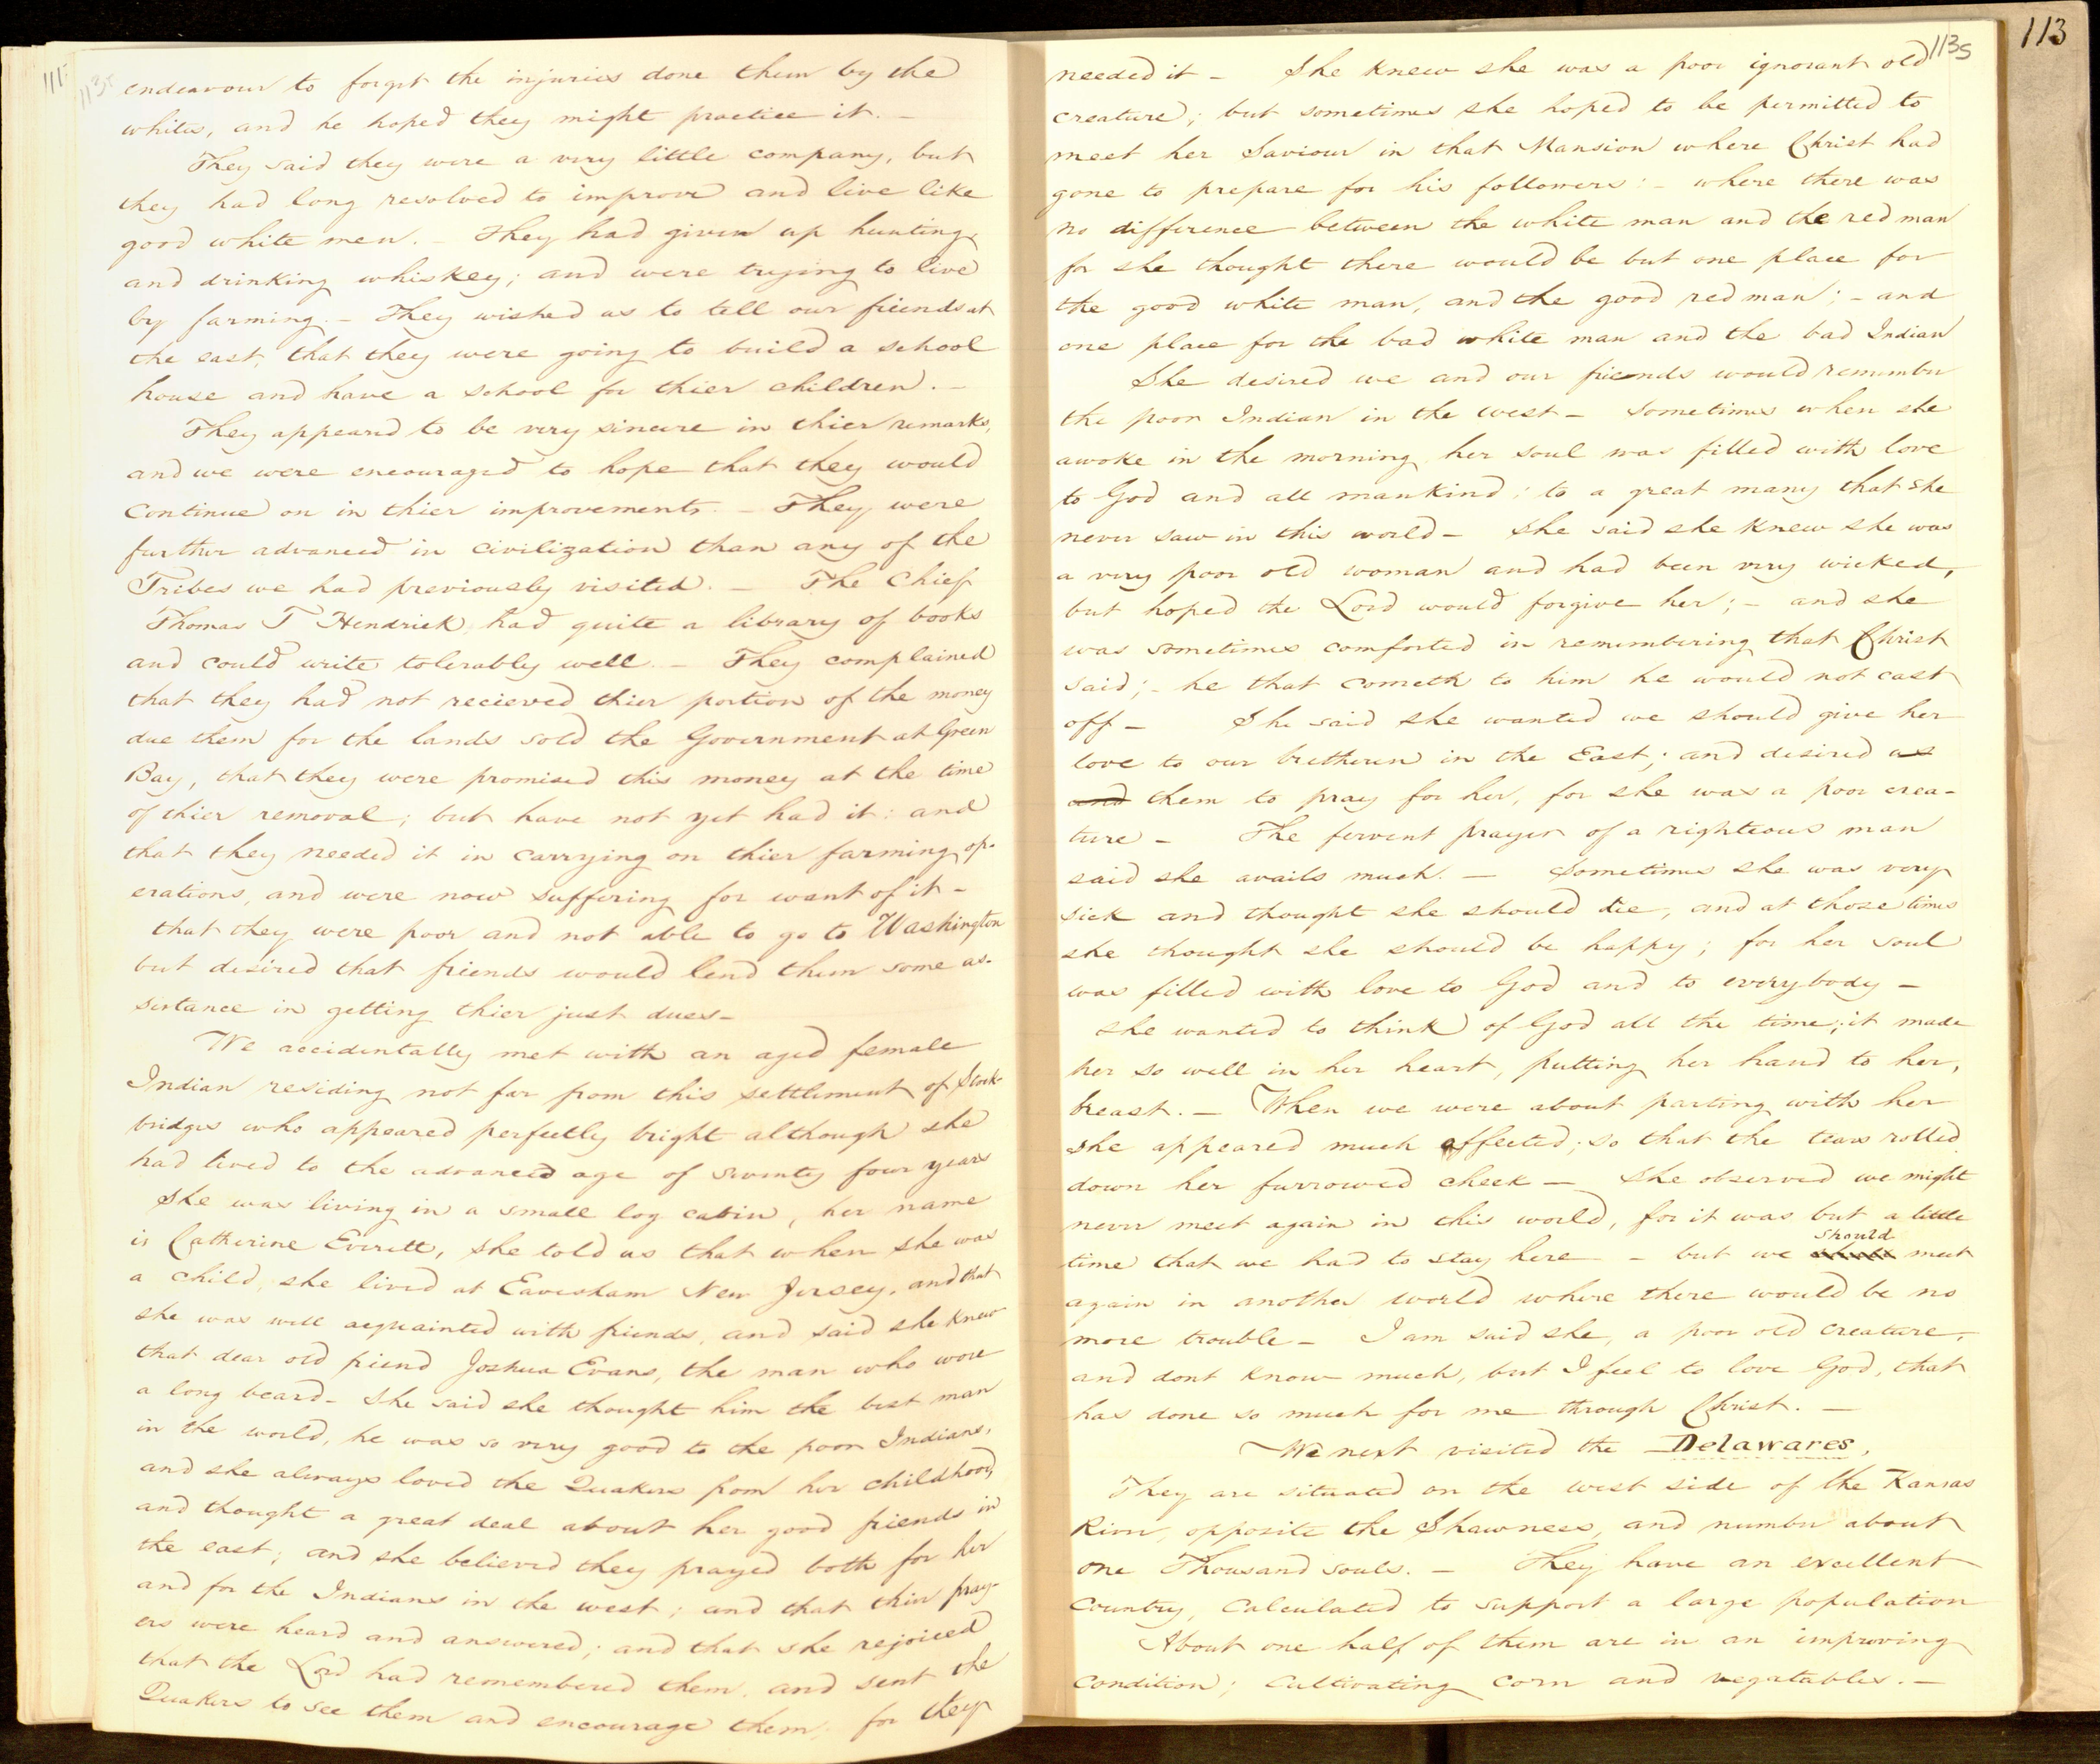 endeavour to forget the injuries done them by the
whites, and he hoped they might practice it. –
They said they were a very little company, but
they had long resolved to improve and live like
good white men. – They had given up hunting,
and drinking whiskey; and were trying to live
by farming. – They wished us to tell our friends at
the east, that they were going to build a school
house and have a school for thier children. –
They appeared to be very sincere in thier remarks,
and we were encouraged to hope that they would
continue on in thier improvements. – They were
further advanced in civilization than any of the
Tribes we had previously visited. – The Chief
Thomas T Hendrick, had quite a library of books
and could write tolerably well. – They complained
that they had not recieved thier portion of the money
due them for the lands sold the Government at Green
Bay, that they were promised this money at the time
of thier removal; but have not yet had it: and
that they needed it in carrying on thier farming op-
erations, and were now suffering for want of it –
that they were poor and not able to go to Washington
but desired that friends would lend them some as-
sistance in getting thier just dues –
We accidentally met with an aged female
Indian residing not far from this settlement of Stock-
bridges who appeared perfectly bright although she
had lived to the advanced age of seventy four years
She was living in a small log cabin, her name
is Catherine Everett, she told us that when she was
a child, she lived at Eavesham New Jersey, and that
she was well acquainted with friends, and said she knew
that dear old friend Joshua Evans, the man who wore
a long beard – She said she thought him the best man
in the world, he was so very good to the poor Indians,
and she always loved the Quakers from her childhood,
and thought a great deal about her good friends in
the east; and she believed they prayed both for her
and for the Indians in the west; and that thier pray-
ers were heard and answered; and that she rejoiced
that the Lord had remembered them, and sent the
Quakers to see them and encourage them, for they
113
113
needed it – She knew she was a poor ignorant old
creature; but sometimes she hoped to be permitted to
meet her Saviour in that Mansion where Christ had
gone to prepare for his followers: – where there was
no difference between the white man and the red man
for she thought there would be but one place for
the good white man, and the good red man; – and
one place for the bad white man and the bad Indian
She desired we and our friends would remember
the poor Indian in the west – Sometimes when she
awoke in the morning her soul was filled with love
to God and all mankind; to a great many that she
never saw in this world – She said she knew she was
a very poor old woman and had been very wicked,
but hoped the Lord would forgive her; – and she
was sometimes comforted in remembering that Christ
said; – he that cometh to him he would not cast
off – She said she wanted we should give her
love to our bretheren in the East; and desired us
and them to pray for her, for she was a poor crea-
ture – The fervent prayer of a righteous man
said she avails much. – Sometimes she was very
sick and thought she should die, and at those times
she thought she should be happy; for her soul
was filled with love to God and to everybody –
She wanted to think of God all the time; it made
her so well in her heart, putting her hand to her,
breast. – When we were about parting with her
she appeared much affected; so that the tears rolled
down her furrowed cheek – She observed we might
never meet again in this world, for it was but a little
time that we had to stay here – but we should meet
again in another world where there would be no
more trouble – I am said she, a poor old creature,
and dont know much, but I feel to love God, that
has done so much for me through Christ. –
We next visited the Delawares,
They are situated on the west side of the Kansas
River, opposite the Shawnees, and number about
one Thousand souls. – They have an excellent
country, calculated to support a large population
About one half of them are in an improving
condition; cultivating corn and vegatables. –